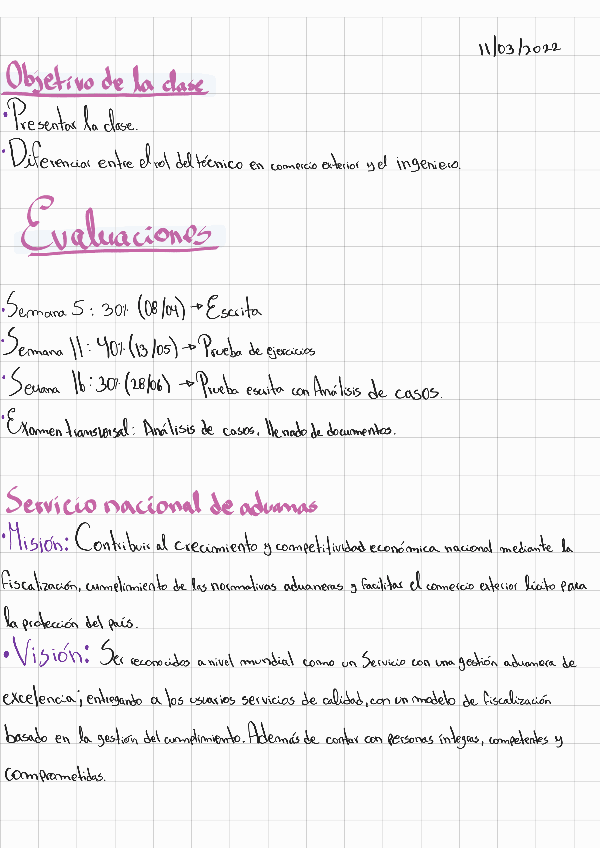 11/03/2022
Objetivo de la clase
· Presentar la clase.
· Diferenciar entre el rol del técnico en comercio exterior y el ingeniero.
Evaluaciones
· Semana 5: 30% (08/04) → Escrita
· Semana 11: 40% (13/05) → Prueba de ejercicios
· Semana 16: 30% (28/06) → Prueba escrita con Análisis de casos.
· Examen transversal: Análisis de casos, llenado de documentos.
Servicio nacional de aduanas
· Misión: Contribuir al crecimiento y competitividad económica nacional mediante la
fiscalización, cumplimiento de las normativas aduaneras y facilitar el comercio exterior lícito para
la protección del país.
· Visión: Ser reconocidos a nivel mundial como un Servicio con una gestión aduanera de
excelencia; entregando a los usuarios servicios de calidad, con un modelo de fiscalización
basado en la gestión del cumplimiento. Además de contar con personas íntegras, competentes y
comprometidas.